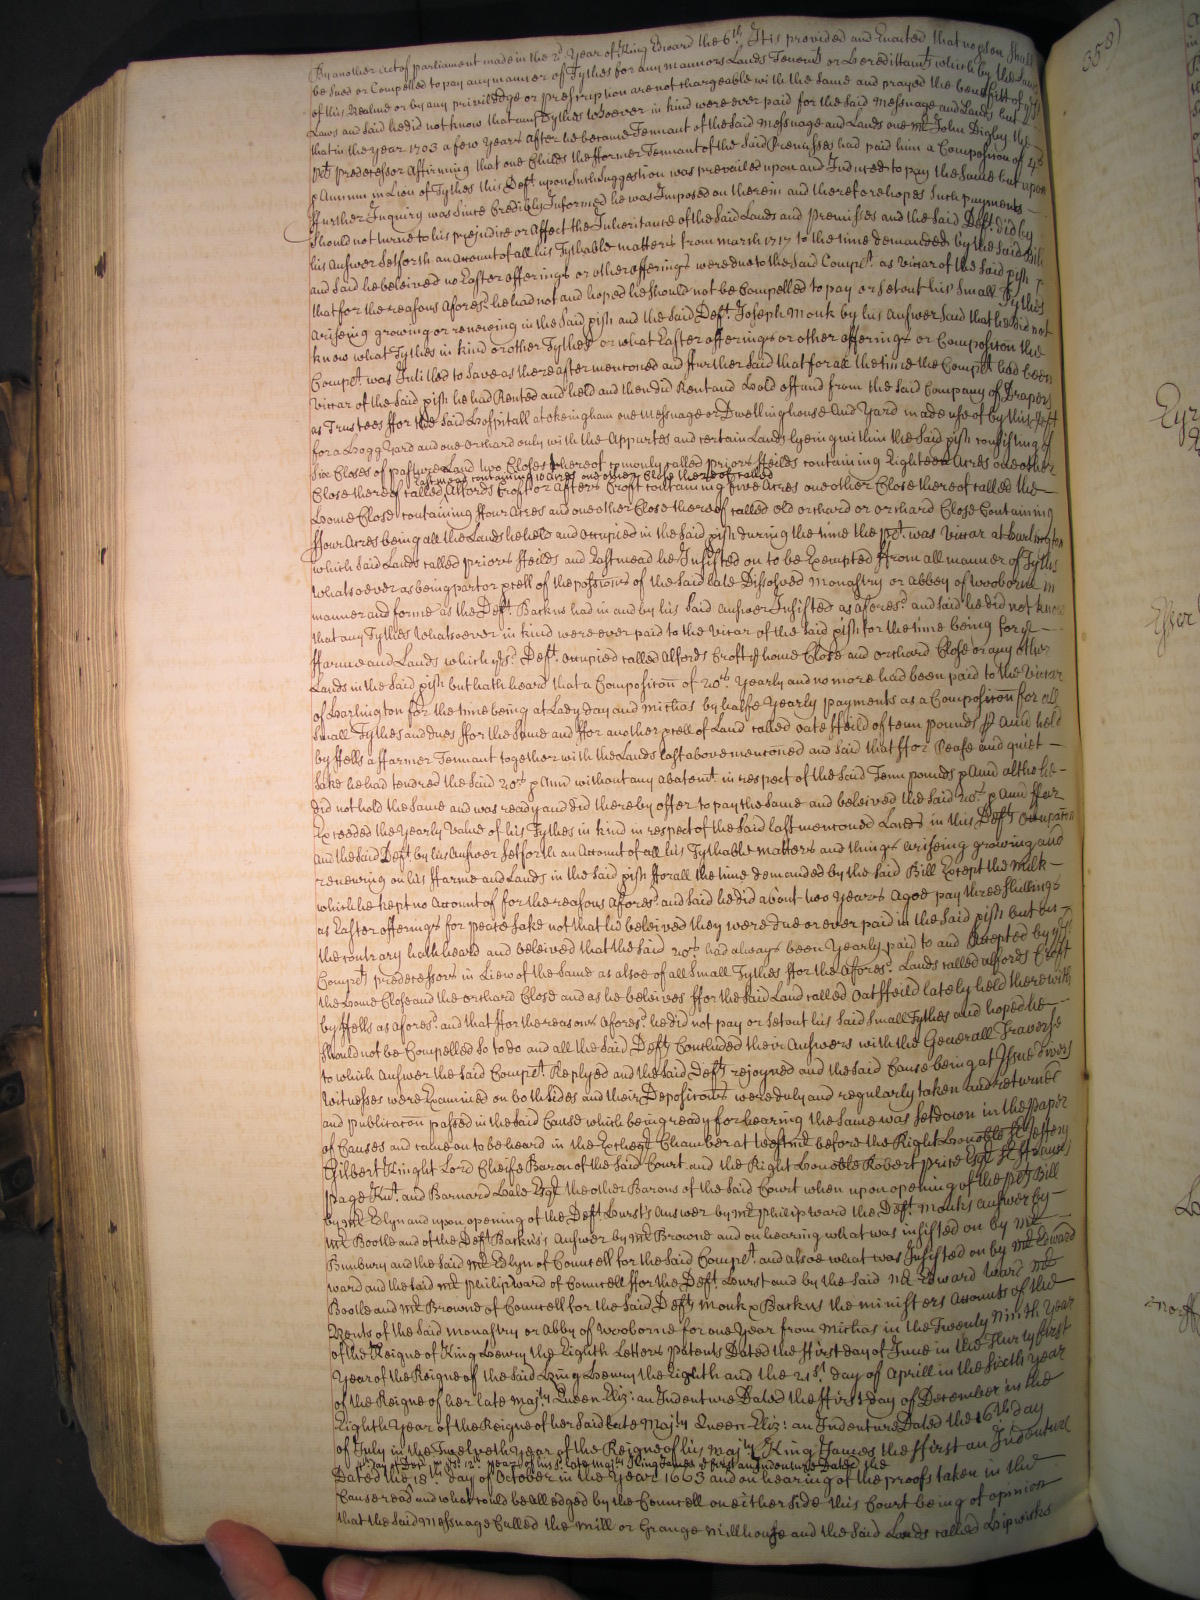 By another act of parliament made in the 2d. Year of King Edward the 6th. It is provided and Enacted that no pson shall
be Sued or Compelled to pay any manner of Tythes for any mannors Lands Tenemts or hereditamts which by the Laws
of this Realme or by any priviledge or prescription are not chargeable with the Same and prayed the benefitt of
Laws and Said he did not know that any Tythes whatsoever in kind were ever paid for the Said Messuage and Lands but
that in the Year 1703 a few Years after he became Tennant of the Said Messuage and Lands one Mr John Digby the
plts predecessor Affirming that one Childe the fformer Tennant of the Said Premisses had paid him a Composition of
p Annum in Lieu of Tythes this Deft upon Such Suggestion was prevailed upon and Induced to pay the Same but upon
ffurther Inquiry was Since Credibly Informed he was Imposed on therein and therefore hopes Such payments
should not turne to his prejudice or Affect the Inheritance of the Said Lands and premisses and the Said Deft. did by
his Answer Setforth an account of all his Tythable matters from March 1717 to the time demanded by the Said Bill
and Said he beleived no Easter offerings or other offerings were due to the Said Complt. as viccar of the Said pish
that for the reasons Aforesd. he had not and hoped he should not be Compelled to pay or Setout his Small Tythes
Ariseing growing or renewing in the Said pish and the Said Deft. Joseph Monk by his Answer Said that he did not
know what Tythes in kind or other Tythes or what Easter offerings or other offerings or Composicon the
Complt was Intitled to Save as thereafter menconed and ffurther Said that for all the time the Complt had been
viccar of the Said pish he had Rented and held and then did Rent and hold off and from the Said Company of Drapers
as Trustees ffor the Said Hospitall at okeingham one Messuage or Dwelling house And Yard made use of by this Deft
for a Hogg Yard and one orchard only with the Appurtes and certain Lands lyeing within the Said pish consisting of
Six Closes of pasture Land two Closes whereof comonly called priors ffeilds containing Eighteen Acres one other
Close thereof called Eastmead containing 10 Acres one other Close thereof called
Alfords Croft or Afters Croft containing five Acres one other Close thereof called the
Home Close containing ffour Acres and one other Close thereof called old orchard or orchard Close Containing
ffour Acres being all the Lands he held and occupied in the Said pish during the time the plt. was Viccar at harlington
which Said Lands called priors ffeilds and Eastmead he Insisted on to be Exempted ffrom all manner of Tythes
whatsoever as being part or pcell of the possions of the Said late Dissolved Monastry or Abbey of Wooborne in
manner and forme as the Deft. Backus had in and by his Said Answer Insisted as aforesd. and Said he did not know
that any Tythes Whatsoever in kind were ever paid to the vicar of the Said pish for the time being for ye
ffarme and Lands which ye sd. Deft. occupied called Alfords Croft ye home Close and orchard Close or any other
Lands in the Said pish but hath heard that a Composicon of 20s. Yearly and no more had been paid to the Viccar
of Harlington for the time being at Lady day and Michas by halfe Yearly payments as a Composicon for all
Small Tythes and dues ffor the Same and ffor another pcell of Land called oate ffeild of tenn pounds p Ann held
by ffells a fformer Tennant together with the Lands last above menconed and Said that ffor Pease and quiet
Sake he had tendred the Said 20s. p Ann without any abatemt in respect of the Said Tenn pounds p Ann altho he
did not hold the Same and was ready and did thereby offer to pay the Same and beleived the Said 20s. p Ann ffar
Exceeded the Yearly Value of his Tythes in kind in respect of the Said last menconed Lands in this Defts Occupacon
and the Said Deft by his Answer Setforth an Account of all his Tythable matters and things ariseing growing and
renewing on his ffarme and Lands in the Said pish fforall the time demanded by the Said Bill Except the Milk
which he kept no Account of for the reasons Aforesd. and Said he did about two Years agoe pay three Shillings
as Easter offerings for peace Sake not that he beleived they were due or ever paid in the Said pish but on
the contrary hath heard and beleived that the Said 20s. had always been Yearly paid to and Accepted by ye sd.
Complts predecessors in Liew of the Same as alsoe of all Small Tythes ffor the Aforesd. Lands called Alfords Croft
the Home Close and the orchard Close and as he beleives ffor the Said Land called oat ffeild lately held therewith
by ffells as aforesd. and that ffor the reasons Aforesd. he did not pay or Setout his Said Small Tythes and hoped he
should not be Compelled So to do and all the Said Defts Concluded their Answers with the Generall Traverse
to which Answer the Said Complt Replyed and the Said Defts rejoyned and the Said Cause being at Issue divers
Witnesses were Examined on both Sides and their Depositions were duly and regularly taken and returned
and publicacon passed in the Said Cause which being ready for hearing the Same was Setdown in the Paper
of Causes and came on to be heard in the Excheqr Chamber at Westmr before the Right Honoble Sr Jeffery
Gilbert Knight Lord Cheife Baron of the Said Court and the Right Honoble Robert price Esqr Sr Francis
page Knt. and Barnard Hale Esqr the other Barons of the Said Court when upon opening of the plts Bill
by Mr Edlyn and upon opening of the Deft Hursts Answer by Mr Philip ward the Deft. Monks Answer by
Mr Bootle and of the Deft Backus's Answer by Mr Browne and on hearing what was insisted on by Mr
Bunbury and the Said Mr Edlyn of Councell for the Said Complt and alsoe what was Insisted on by Mr Edward
ward and the said Mr Philip ward of Councell ffor the Deft. Hurst and by the Said Mr Edward Ward Mr
Bootle and Mr Browne of Councell for the Said Defts Monk & Backus the ministers Accounts of the
Rents of the Said Monastry or Abby of Wooborne for one Year from Michas in the Twenty Ninth Year
of the Reigne of King Henry the Eighth Letters Patents Dated the ffirst day of June in the Thirty first
Year of the Reigne of the Said King Henry the Eighth and the 21st. day of Aprill in the Sixth Year
of the Reigne of her late Majty Queen Eliz: an Indenture Dated the ffirst day of December in the
Eighth Year of the Reigne of her Said late Majty Queen Eliz: an Indenture Dated the 16th day
of July in the Twelveth Year of the Reigne of his Majty King James the ffirst an Indenture
Dated the 18th day of October in the Year 1663 and on hearing of the proofs taken in the
Cause read and what could be alledged by the Councell on either side this Court being of opinion
that the Said Messuage Called the Mill or Grange Millhouse and the Said Lands called Lipwicks
358)